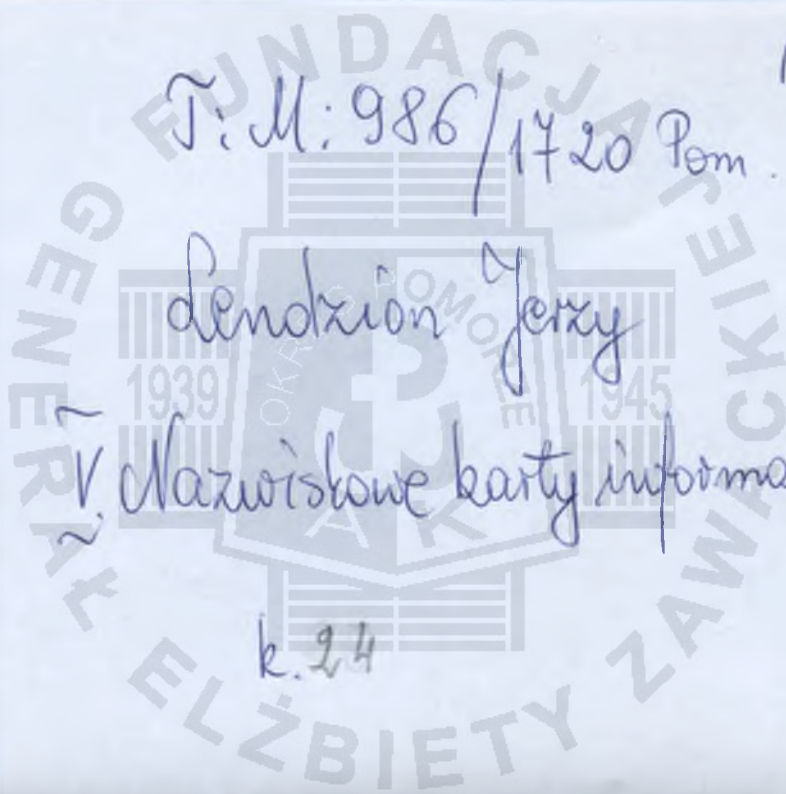 T: M: 986/1720 Pom.
Lendzion Jerzy
V. Nazwiskowe karty informa
k. 24
FUNDACJA
GENERAŁ ELŻBIETY ZAWACKIEJ
OKRĘG POMORZE
1939
1945
AK